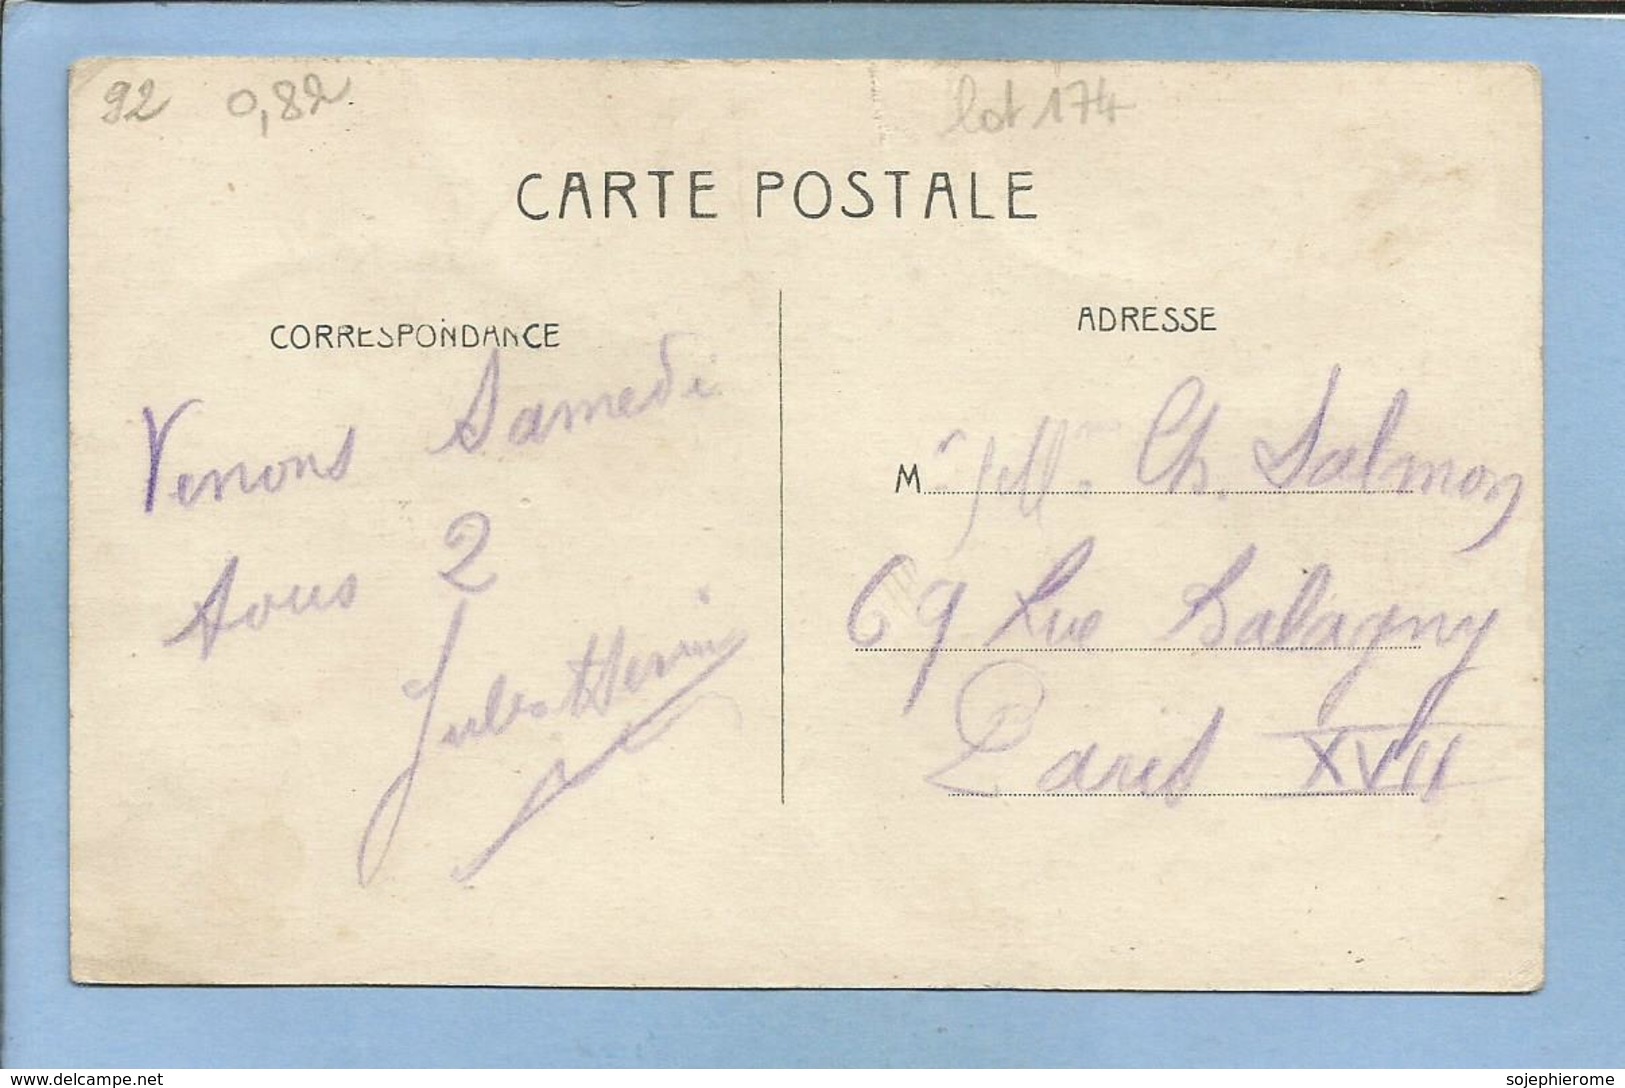 92 0,82 lot 174
CARTE POSTALE
CORRESPONDANCE
Venons Samedi
tous 2
Jules
ADRESSE
M Ch. Salmon
69 Rue Balagny
Paris XVII
www.delcampe.net
sojephierome